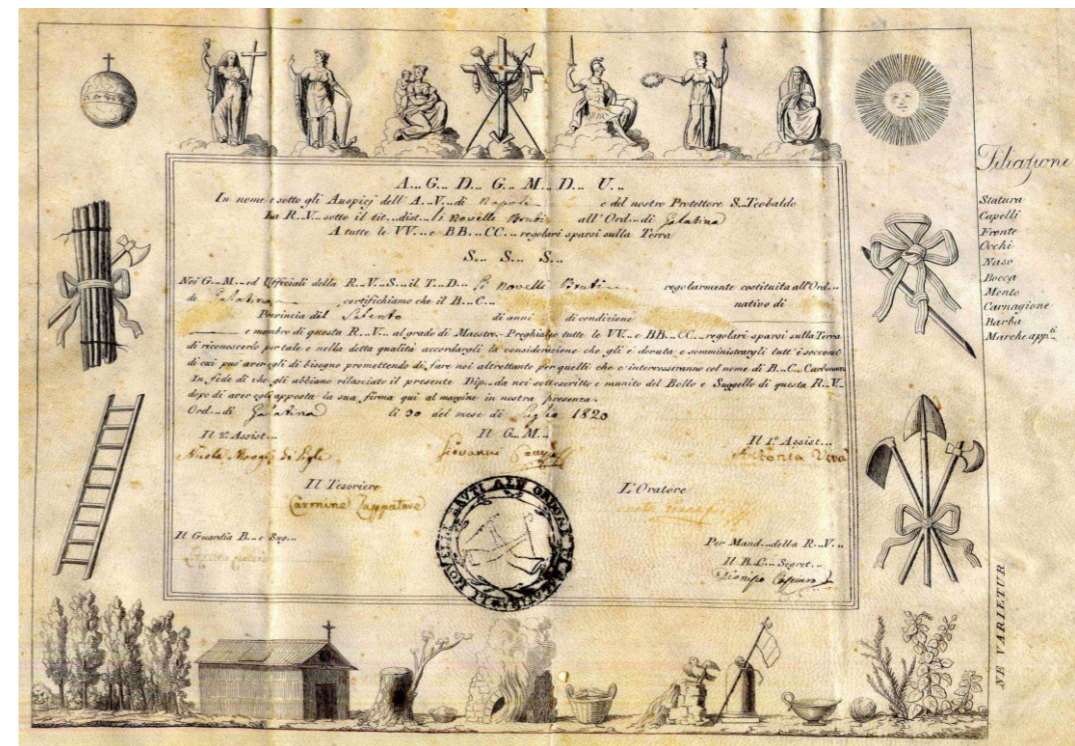 A... G... D... G... M... D... U...
In nome e sotto gli Auspicj dell' A...V...di Napoli e del nostro Protettore S...Teobaldo
La R...V...sotto il tit...dist...li Novelli Bruti all' Ord...di Galatina
A tutte le VV... e BB...CC...regolari sparsi sulla Terra
S... S... S...
Noi G...M...ed Ufficiali della R...V...S...il T...D... li Novelli Bruti regolarmente costituita all'Ord...
di Galatina certifichiamo che il B...C... nativo di
Provincia di Salento di anni di condizione
e membro di questa R...V... al grado di Maestro. Preghiamo tutte le VV... e BB...CC...regolari sparsi sulla Terra
di riconoscerlo per tale e nella detta qualità accordargli la considerazione che gli è dovuta e somministrargli tutt' i soccorsi
di cui può aver egli di bisogno promettendo di fare noi altrettanto per quelli che c'interesseranno col nome di B...C...Carbonari
In fede di che gli abbiamo rilasciato il presente Dip...da noi sottoscritto e munito del Bollo e Suggello di questa R...V...
dopo di aver egli apposta la sua firma qui al margine in nostra presenza.
Ord...di Galatina li 30 del mese di Luglio 1820
Il 2º Assist... Il G...M... Il 1º Assist...
Giovanni
Il Tesoriere L'Oratore
Carmine Zappatore
Il Guardia B... e Sug... Per Mand...della R...V...
Il B...C... Segret...
Dionisio
Filiazione
Statura
Capelli
Fronte
Occhi
Naso
Bocca
Mento
Carnagione
Barba
Marche app.ti
NE VARIETUR